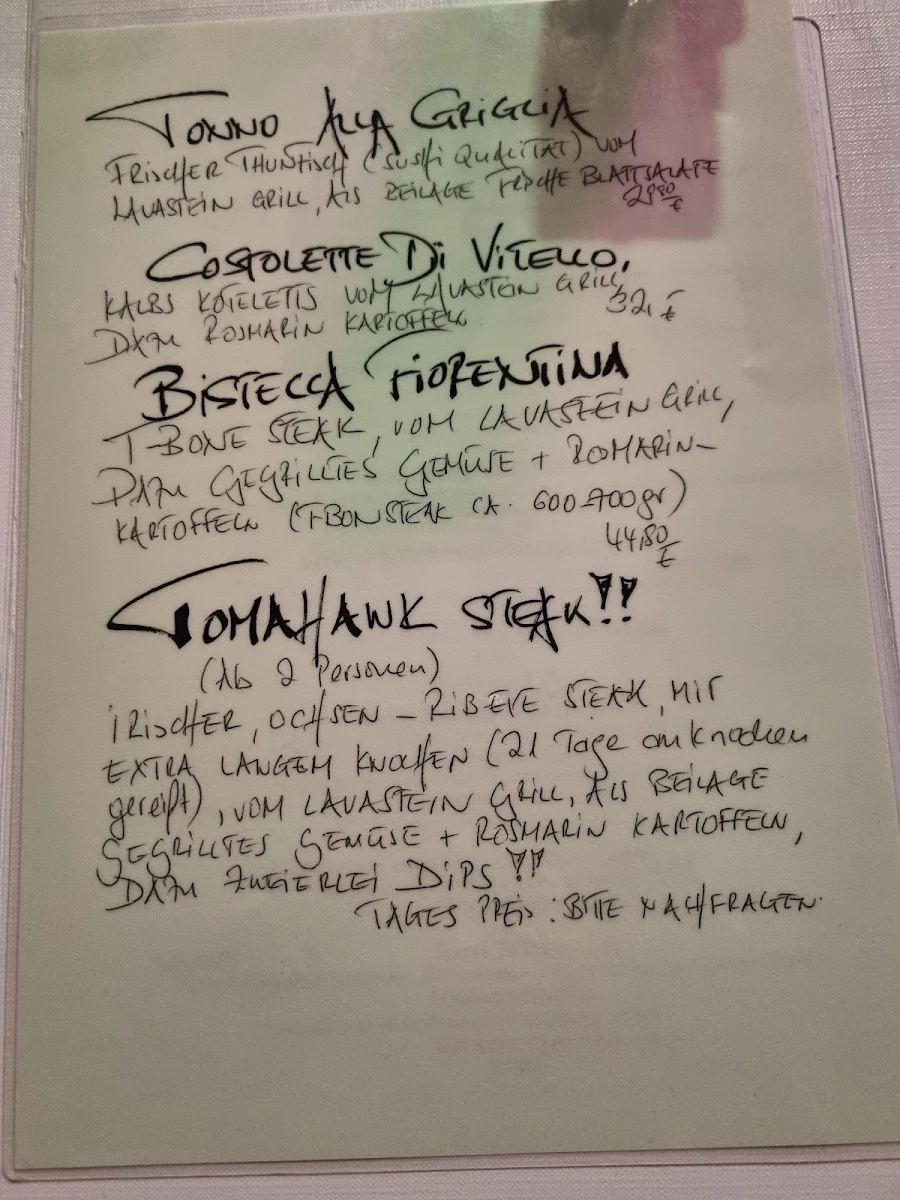 TONNO ALLA GRIGLIA
FRISCHER THUNFISCH (SUSHI QUALITÄT) VOM
LAVASTEIN GRILL, ALS BEILAGE FRISCHE BLATTSALATE
€
COSTOLETTE Di VITELLO,
KALBS KOTELETTS VOM LAVASTEIN GRILL,
32,€
DAZU ROSMARIN KARTOFFELN
BISTECCA FIORENTINA
T-BONE STEAK, VOM LAVASTEIN GRILL,
DAZU GEGRILLTES GEMÜSE + ROSMARIN-
KARTOFFELN (T-BONSTEAK CA. 600-700gr)
44,80 €
TOMAHAWK STEAK!!
(Ab 2 Personen)
IRISCHER, OCHSEN - RIBEYE STEAK, MIT
EXTRA LANGEM KNOCHEN (21 Tage am Knochen
gereift), VOM LAVASTEIN GRILL, ALS BEILAGE
GEGRILLTES GEMÜSE + ROSMARIN KARTOFFELN,
DAZU ZWEIERLEI DIPS!!
TAGES PREIS: BITTE NACHFRAGEN.